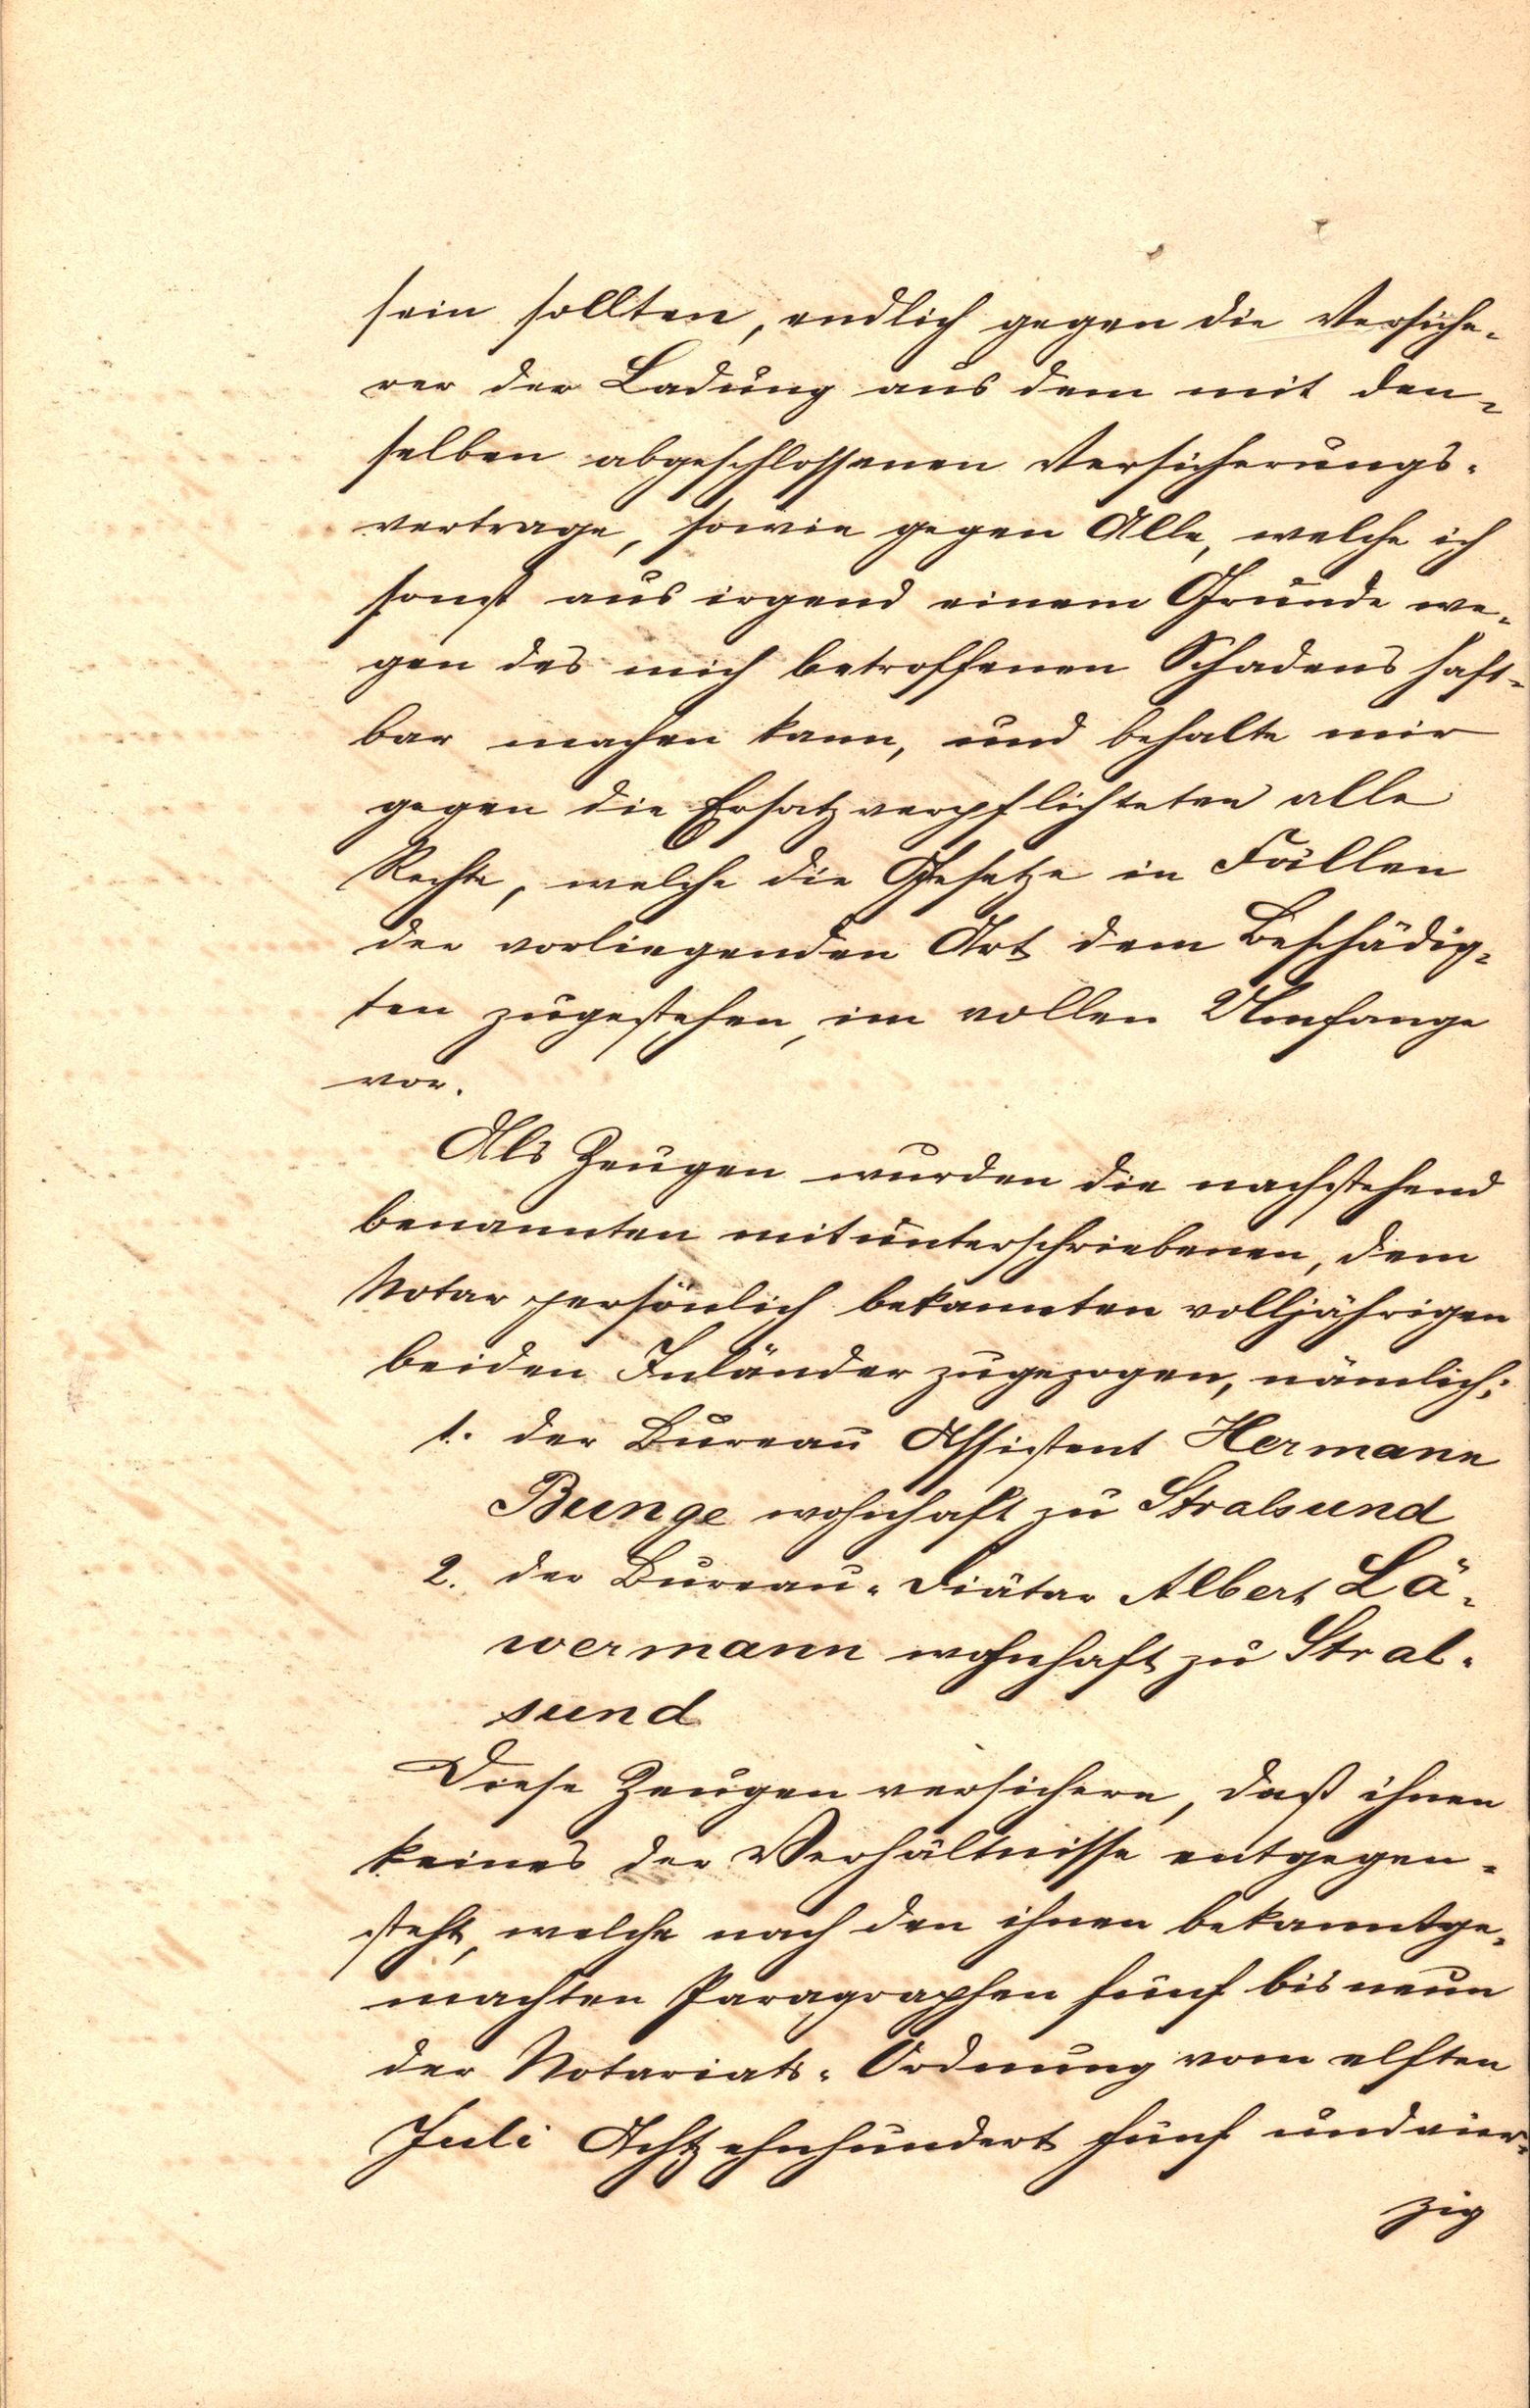 sein sollten, endlich gegen die Versiche-
rer der Ladung aus dem mit den-
selben abgeschlossenen Versicherungs-
vertrage, sowie gegen Alle, welche ich
sonst aus irgend einem Grunde we-
gen des mich betroffenen Schadens haft-
bar machen kann, und behalte mir
gegen die Ersatzverpflichteten alle
Rechte, welche die Gesetze in Fällen
der vorliegenden Art dem Beschädig-
ten zugestehen, im vollen Umfange
vor.
Als Zeugen wurden die nachstehend
benannten mitunterschriebenen, dem
Notar persönlich bekannten volljährigen
beiden Inländer zugezogen, nämlich:
1. der Bureau Assistent Hermann
Bunge wohnhaft zu Stralsund
2. der Bureau-Diätar Albert Lä-
wermann wohnhaft zu Stral-
sund
Diese Zeugen versichern, daß ihnen
keines der Verhältnisse entgegen-
steht, welche nach den ihnen bekanntge-
machten Paragraphen fünf bis neun
der Notariats-Ordnung vom elften
Juli Achtzehnhundert fünf undvier-
zig